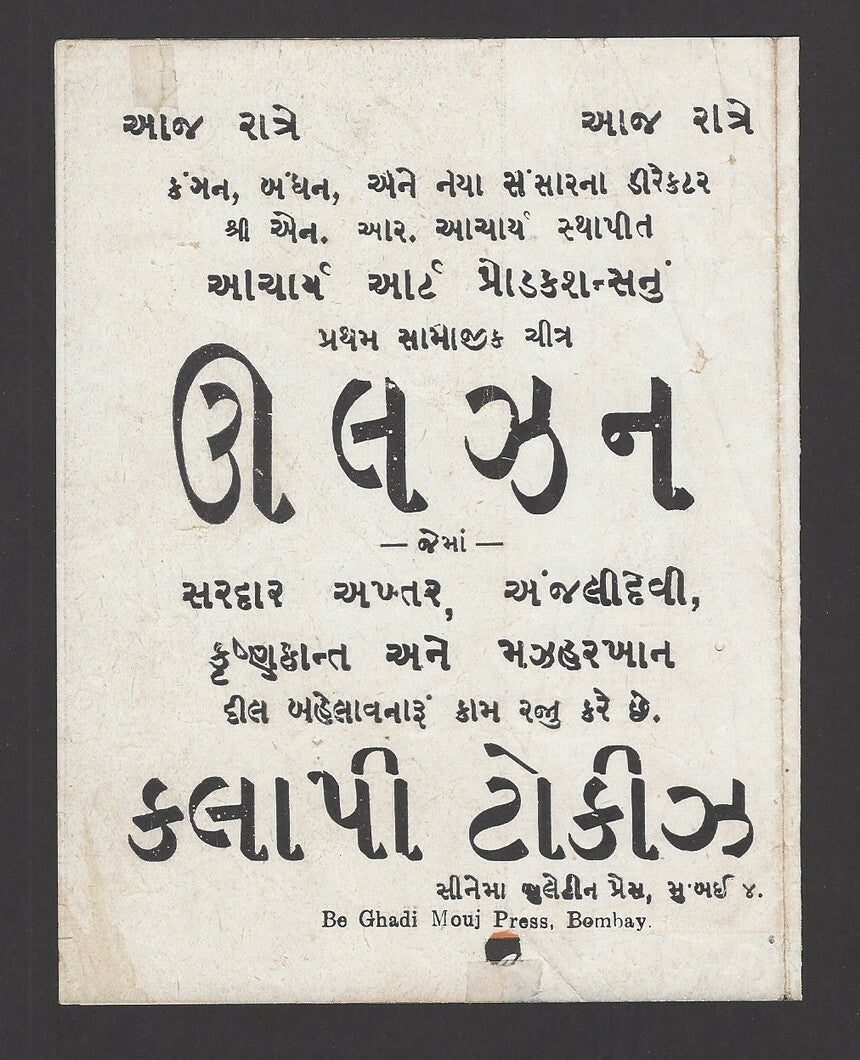 આજ રાત્રે આજ રાત્રે
કંગન, બંધન, અને નયા સંસારના ડીરેકટર
શ્રી એન. આર. આચાર્ય સ્થાપીત
આચાર્ય આર્ટ પ્રોડકશન્સનું
પ્રથમ સામાજીક ચીત્ર
ઊલઝન
— જેમાં —
સરદાર અખ્તર, અંજલીદેવી,
કૃષ્ણકાન્ત અને મઝહરખાન
દીલ બહેલાવનારૂં કામ રજુ કરે છે.
કલાપી ટોકીઝ
સીનેમા બુલેટીન પ્રેસ, મુંબઈ ૪.
Be Ghadi Mouj Press, Bombay.